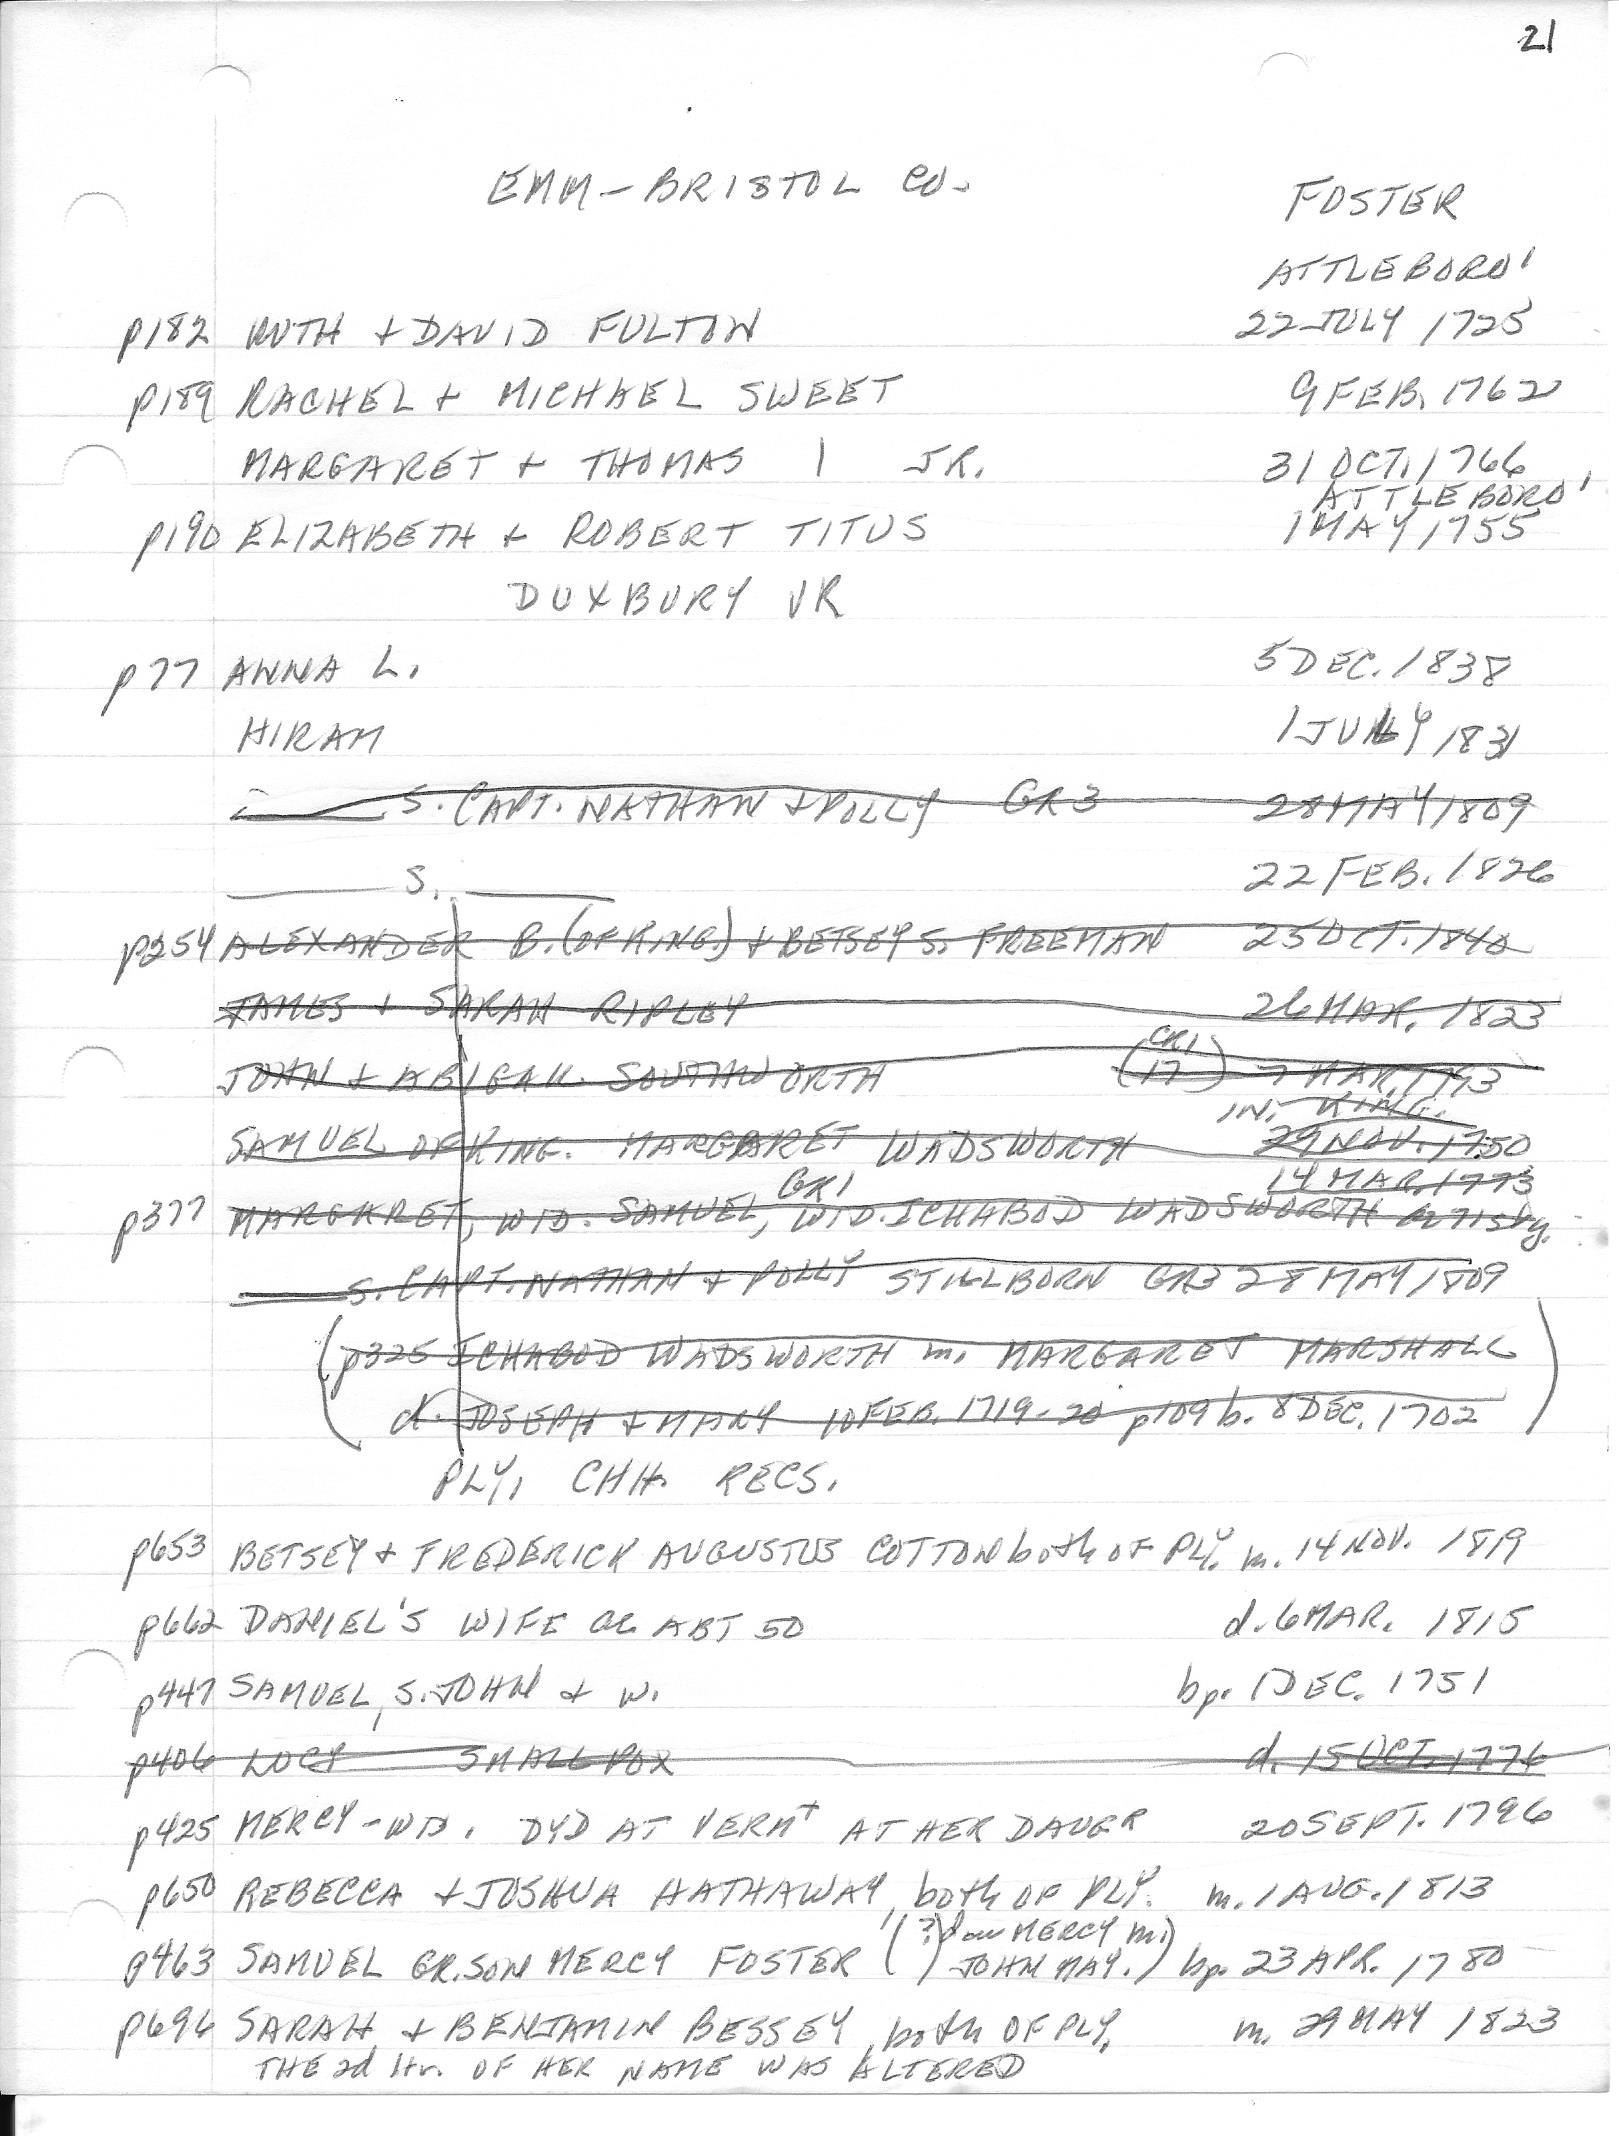 21
EMM - BRISTOL CO.
FOSTER
ATTLEBORO'
p182 RUTH + DAVID FULTON 22 JULY 1725
p189 RACHEL + MICHAEL SWEET 9 FEB. 1762
MARGARET + THOMAS | JR. 31 OCT. 1766
ATTLEBORO'
p190 ELIZABETH + ROBERT TITUS 1 MAY 1755
DUXBURY VR
p77 ANNA L. 5 DEC. 1838
HIRAM 1 JULY 1831
S. CAPT. NATHAN + POLLY GR3 28 MAY 1809
S. 22 FEB. 1826
p254 ALEXANDER B. (OF KING.) + BETSEY S. FREEMAN 25 OCT. 1840
JAMES + SARAH RIPLEY 26 MAR. 1823
JOHN + ABIGAIL SOUTHWORTH (CR1 17) 7 MAR. 1793
IN KING.
SAMUEL OF KING. MARGARET WADSWORTH 29 NOV. 1750
GR1 14 MAR. 1773
p377 MARGARET, WID. SAMUEL, WID. ICHABOD WADSWORTH ae 71st y.
S. CAPT. NATHAN + POLLY STILLBORN GR3 28 MAY 1809
(p325 ICHABOD WADSWORTH m. MARGARET MARSHALL
d. JOSEPH + MARY 10 FEB. 1719-20 p109 b. 8 DEC. 1702)
PLY. CHH. RECS.
p653 BETSEY + FREDERICK AUGUSTUS COTTON both OF PLY. m. 14 NOV. 1819
p662 DANIEL'S WIFE ae ABT 50 d. 6 MAR. 1815
p447 SAMUEL, S. JOHN + W. bp. 1 DEC. 1751
p406 LUCY SMALL POX d. 15 OCT. 1776
p425 MERCY - WID. DYD AT VERMT AT HER DAUGR 20 SEPT. 1796
p650 REBECCA + JOSHUA HATHAWAY, both OF PLY. m. 1 AUG. 1813
(?) dau MERCY m.
p463 SAMUEL GR. SON MERCY FOSTER ( ) JOHN MAY.) bp. 23 APR. 1780
p696 SARAH + BENJAMIN BESSEY, both OF PLY, m. 29 MAY 1823
THE 2d ltr. OF HER NAME WAS ALTERED